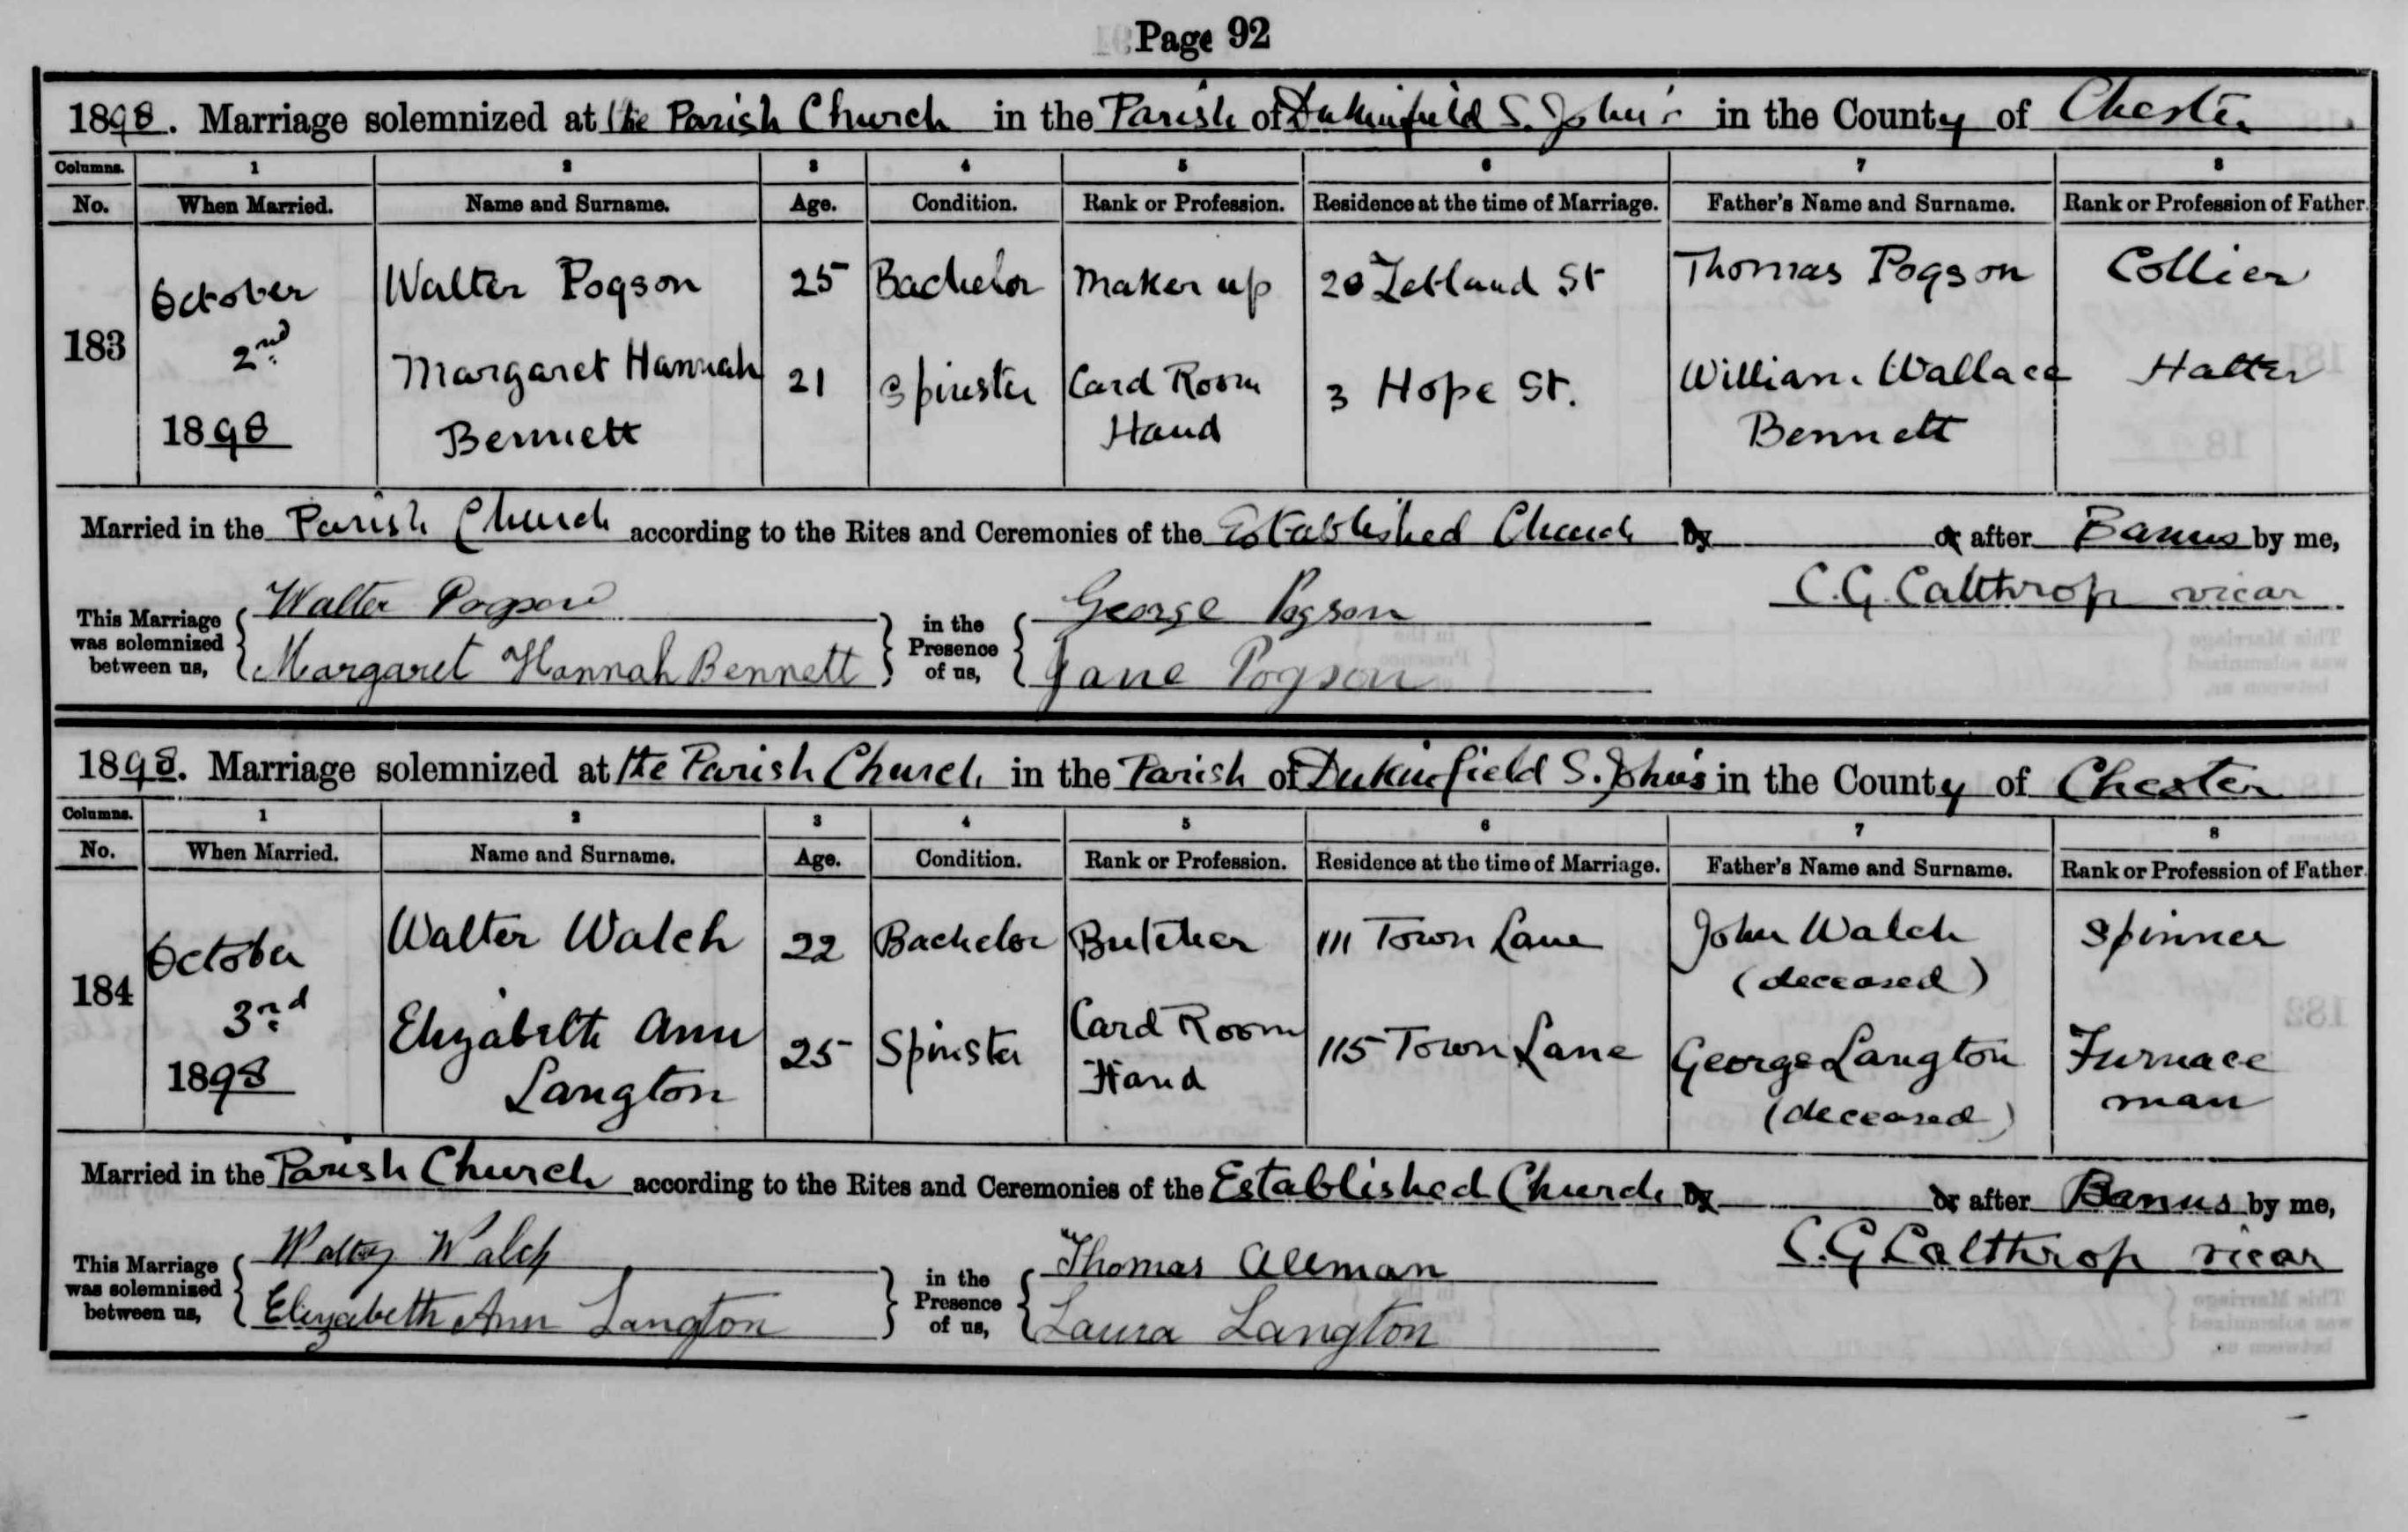 Page 92
1898. Marriage solemnized at the Parish Church in the Parish of Dukinfield S. John's in the County of Chester
Columns. 1 2 3 4 5 6 7 8
No. When Married. Name and Surname. Age. Condition. Rank or Profession. Residence at the time of Marriage. Father's Name and Surname. Rank or Profession of Father.
183 October 2nd 1898 Walter Pogson 25 Bachelor Maker up 20 Zetland St Thomas Pogson Collier
Margaret Hannah 21 Spinster Card Room 3 Hope St. William Wallace Hatter
Bennett Hand Bennett
Married in the Parish Church according to the Rites and Ceremonies of the Established Church by or after Banns by me,
C.G. Calthrop vicar
This Marriage was solemnized between us, Walter Pogson in the Presence of us, George Pogson
Margaret Hannah Bennett Jane Pogson
1898. Marriage solemnized at the Parish Church in the Parish of Dukinfield S. John's in the County of Chester
Columns. 1 2 3 4 5 6 7 8
No. When Married. Name and Surname. Age. Condition. Rank or Profession. Residence at the time of Marriage. Father's Name and Surname. Rank or Profession of Father.
184 October 3rd 1898 Walter Walch 22 Bachelor Butcher 111 Town Lane John Walch Spinner
(deceased)
Elizabeth Ann 25 Spinster Card Room 115 Town Lane George Langton Furnace
Langton Hand (deceased) man
Married in the Parish Church according to the Rites and Ceremonies of the Established Church by or after Banns by me,
C.G Calthrop vicar
This Marriage was solemnized between us, Walter Walch in the Presence of us, Thomas Alleman
Elizabeth Ann Langton Laura Langton